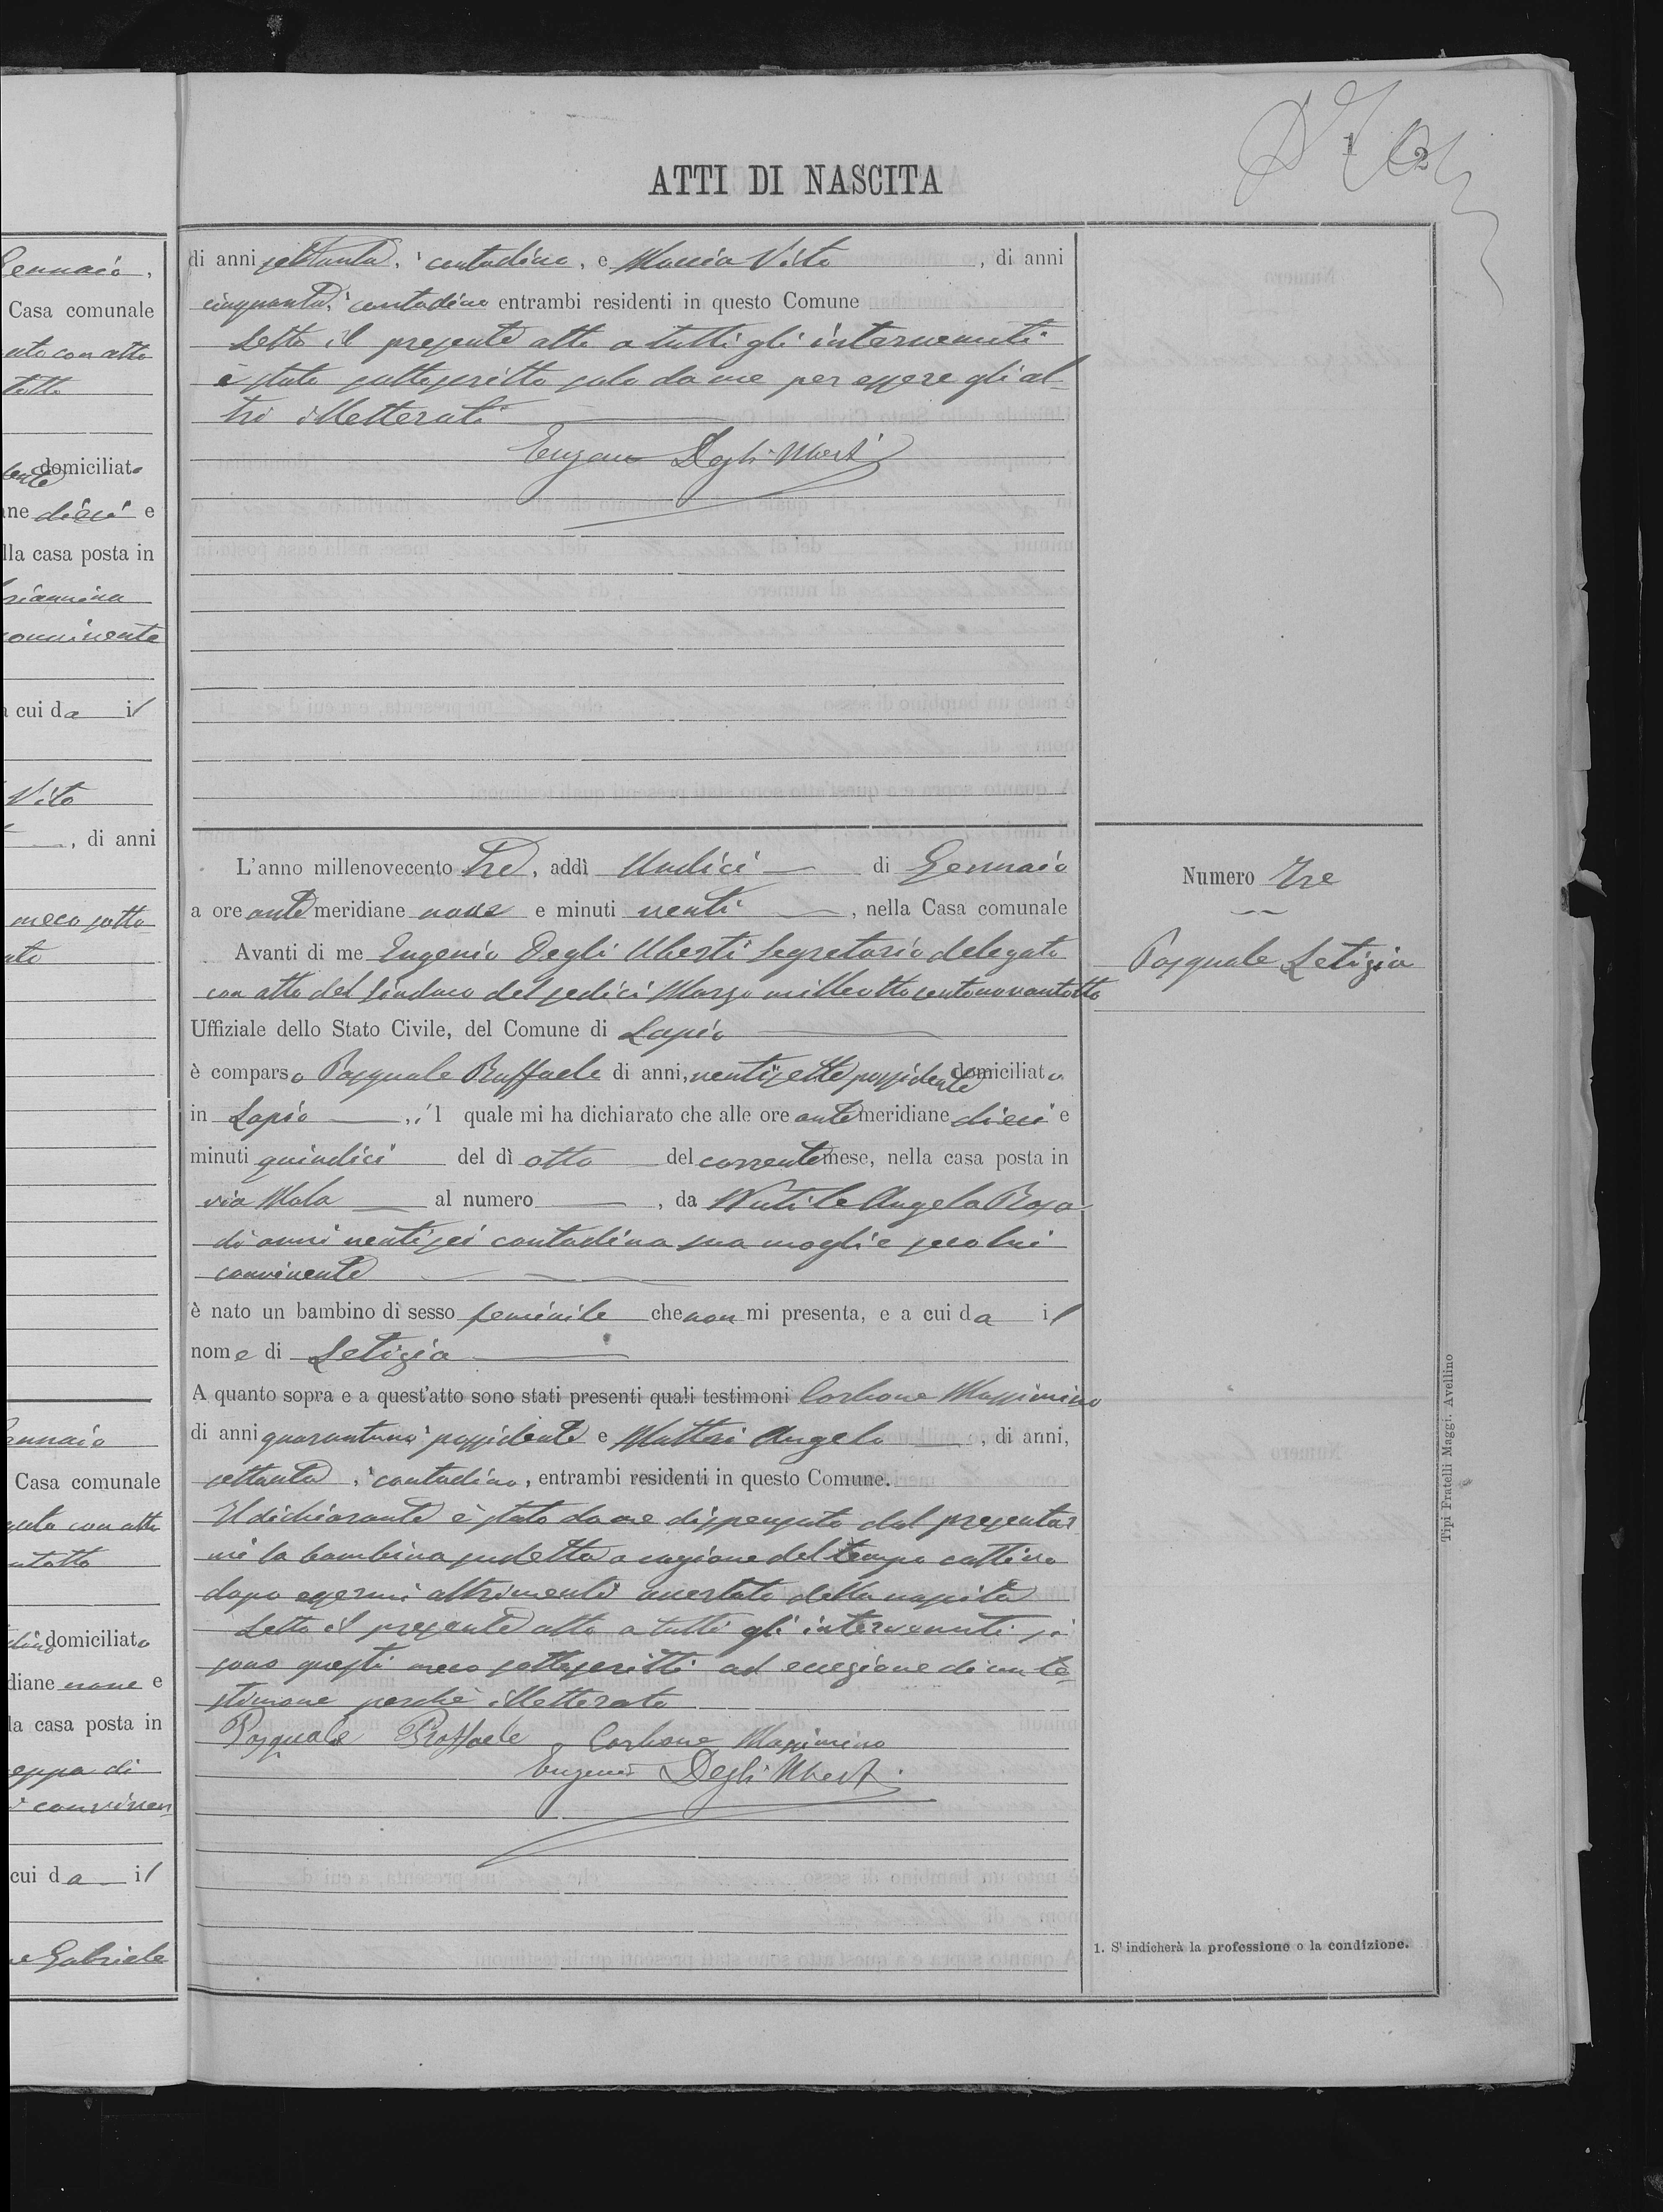 ATTI DI NASCITA
1
2
Gennaio,
Casa comunale
con atto
domiciliato
dieci e
lla casa posta in
cui da il
Vito
, di anni
meco sotto
Gennaio
Casa comunale
con atto
domiciliato
diane nove e
la casa posta in
di
conviven
cui da il
Gabriele
di anni settanta, contadino, e Maccia Vito, di anni
cinquanta, contadino entrambi residenti in questo Comune
Letto il presente atto a tutti gli intervenuti
è stato sottoscritto solo da me per essere gli al-
tri illetterati
Eugenio Degli Uberti
L'anno millenovecento tre, addì Undici di Gennaio
a ore antimeridiane nove e minuti venti, nella Casa comunale
Avanti di me Eugenio Degli Uberti Segretario delegato
con atto del Sindaco del sedici Marzo milleottocentonovantotto
Uffiziale dello Stato Civile, del Comune di Lapio
è comparso Pasquale Raffaele di anni, ventisette possidente domiciliato
in Lapio, il quale mi ha dichiarato che alle ore antimeridiane dieci e
minuti quindici del dì otto del corrente mese, nella casa posta in
via Mola al numero, da Nutile Angela Rosa
di anni ventisei contadina sua moglie seco lui
convivente
è nato un bambino di sesso feminile che non mi presenta, e a cui da il
nome di Letizia
A quanto sopra e a quest'atto sono stati presenti quali testimoni Carbone Massimino
di anni quarantuno possidente e Mattei Angelo, di anni,
settanta, contadino, entrambi residenti in questo Comune.
Il dichiarante è stato da me dispensato dal presentar
mi la bambina sudetta a cagione del tempo cattivo
dopo essermi altrimenti accertato della nascita
Letto il presente atto a tutti gli intervenuti si
sono questi meco sottoscritti ad eccezione di un te-
stimone perchè illetterato
Pasquale Raffaele Carbone Massimino
Eugenio Degli Uberti
Numero Tre
Pasquale Letizia
1. S'indicherà la professione o la condizione.
Tipi Fratelli Maggi. Avellino